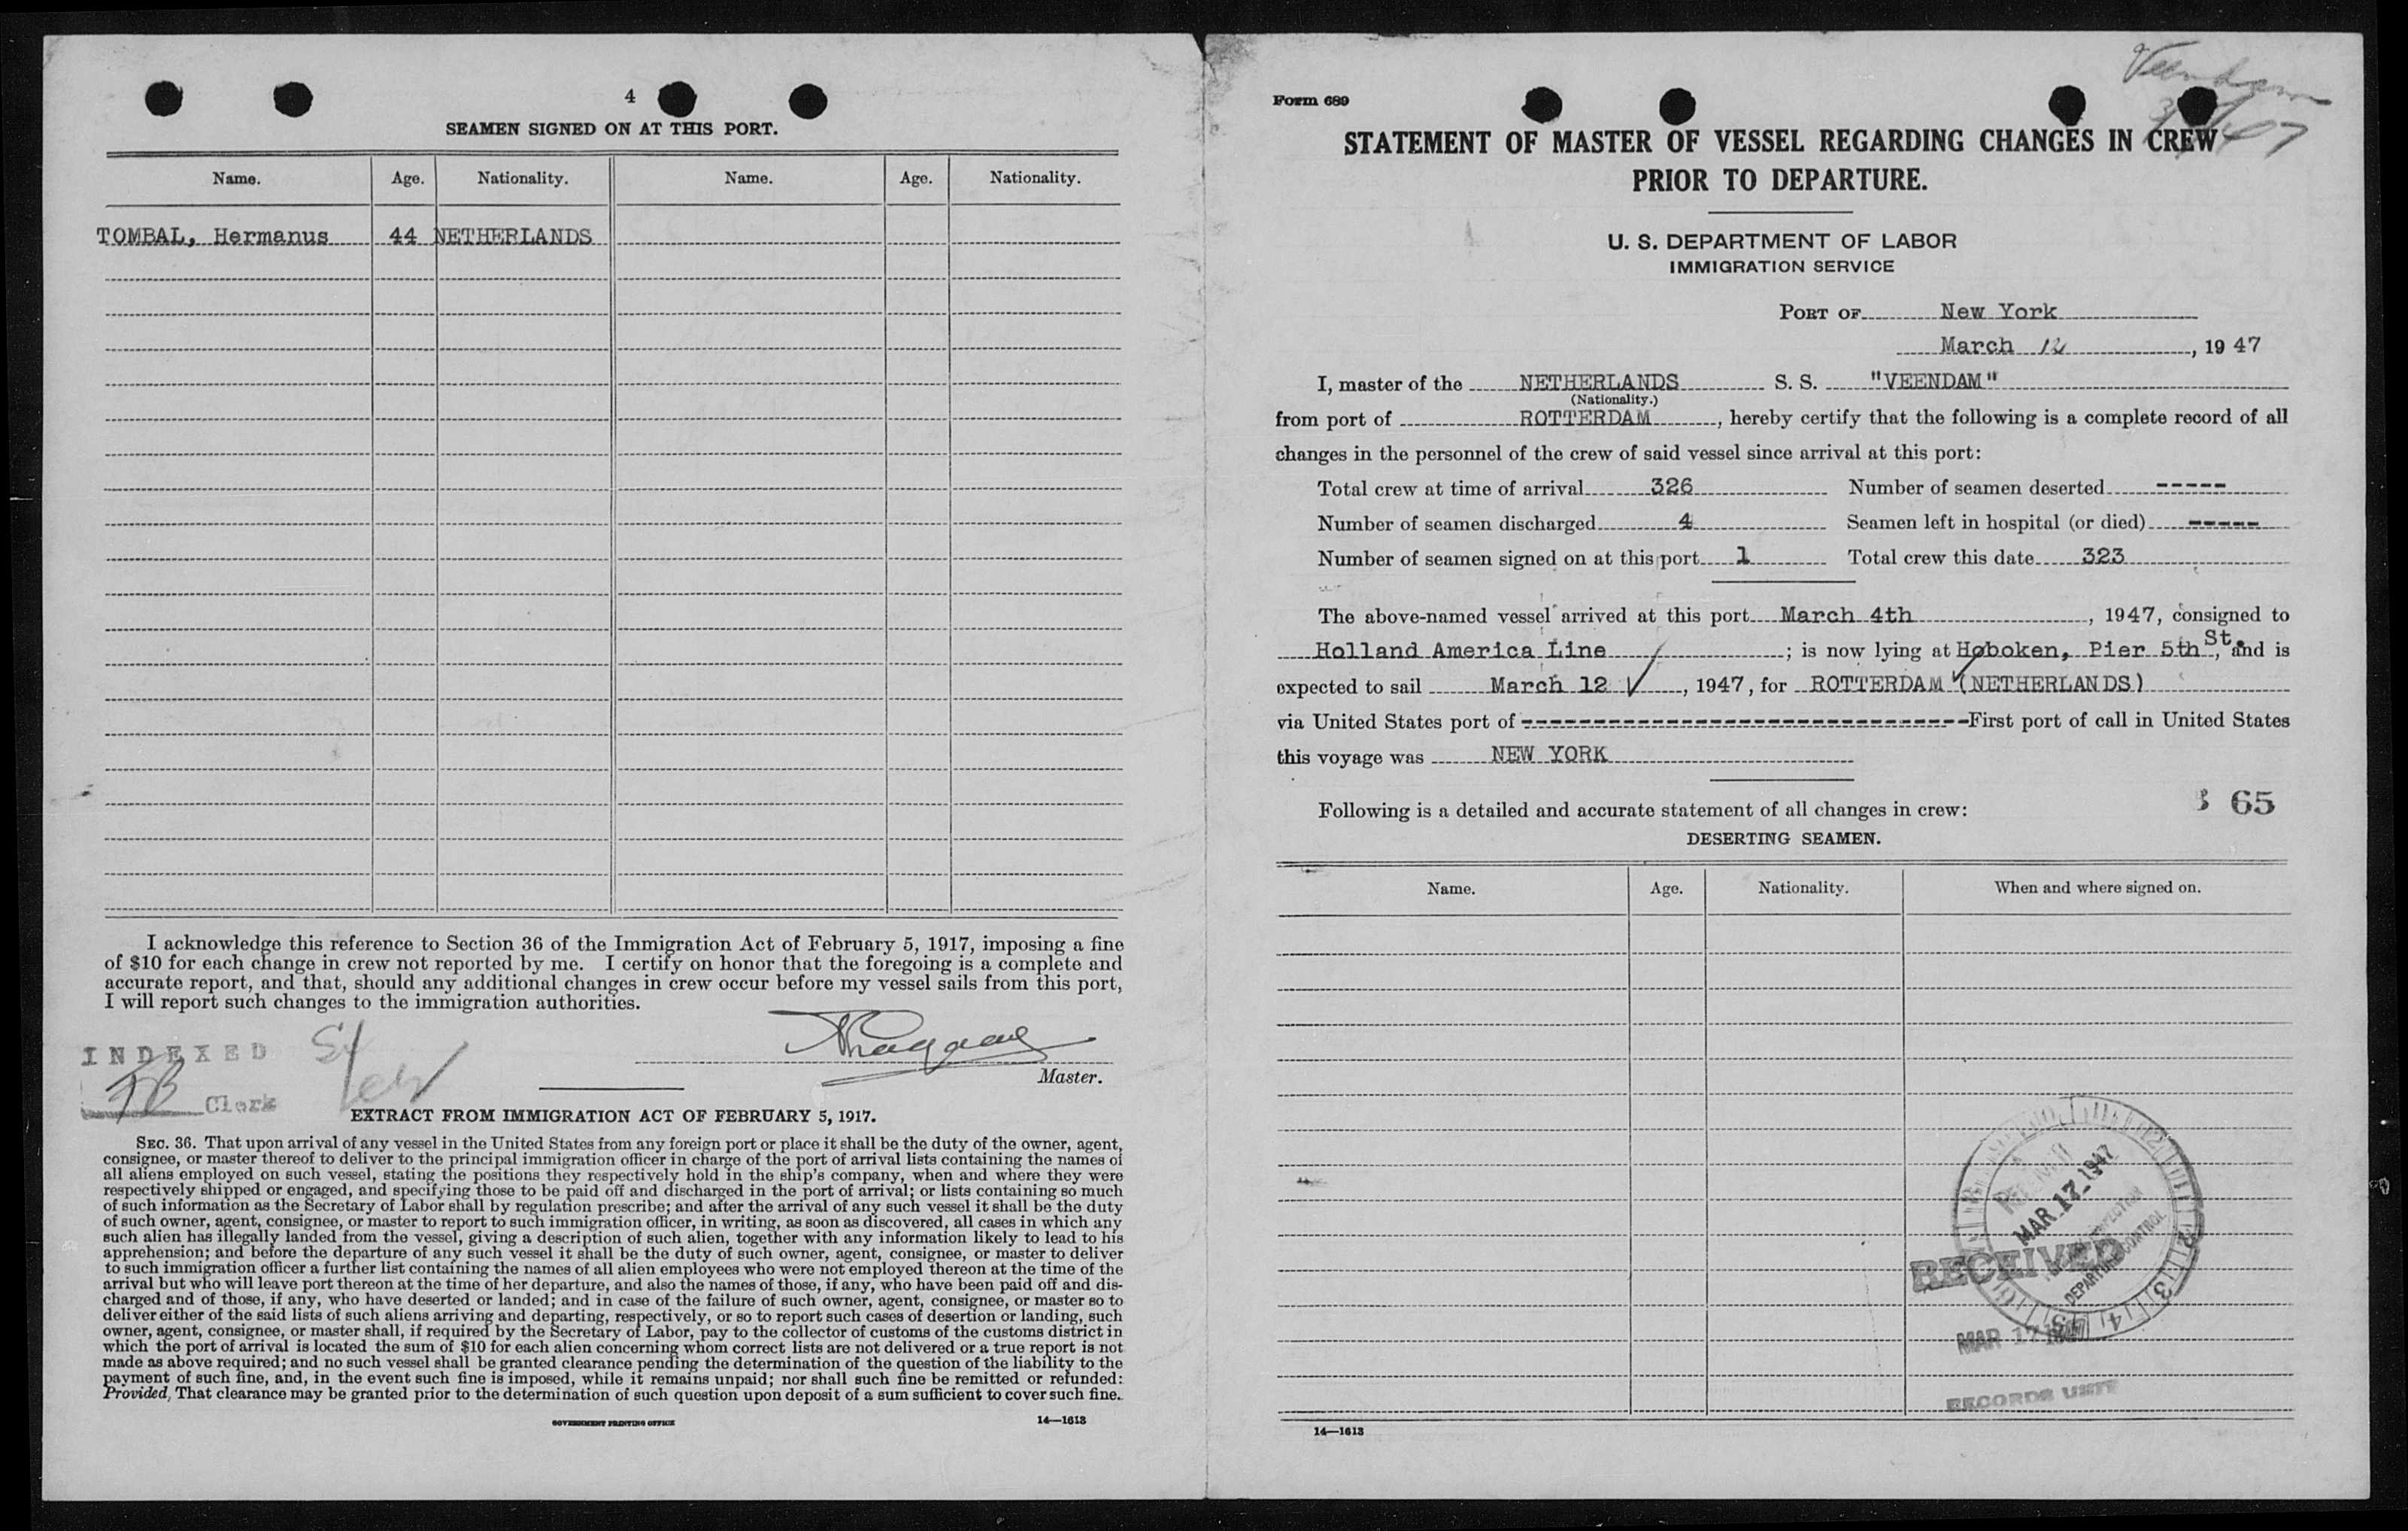 4
SEAMEN SIGNED ON AT THIS PORT.
Name. Age. Nationality. Name. Age. Nationality.
TOMBAL, Hermanus 44 NETHERLANDS
I acknowledge this reference to Section 36 of the Immigration Act of February 5, 1917, imposing a fine
of $10 for each change in crew not reported by me. I certify on honor that the foregoing is a complete and
accurate report, and that, should any additional changes in crew occur before my vessel sails from this port,
I will report such changes to the immigration authorities.
INDEXED
Master.
Clerk
EXTRACT FROM IMMIGRATION ACT OF FEBRUARY 5, 1917.
SEC. 36. That upon arrival of any vessel in the United States from any foreign port or place it shall be the duty of the owner, agent,
consignee, or master thereof to deliver to the principal immigration officer in charge of the port of arrival lists containing the names of
all aliens employed on such vessel, stating the positions they respectively hold in the ship's company, when and where they were
respectively shipped or engaged, and specifying those to be paid off and discharged in the port of arrival; or lists containing so much
of such information as the Secretary of Labor shall by regulation prescribe; and after the arrival of any such vessel it shall be the duty
of such owner, agent, consignee, or master to report to such immigration officer, in writing, as soon as discovered, all cases in which any
such alien has illegally landed from the vessel, giving a description of such alien, together with any information likely to lead to his
apprehension; and before the departure of any such vessel it shall be the duty of such owner, agent, consignee, or master to deliver
to such immigration officer a further list containing the names of all alien employees who were not employed thereon at the time of the
arrival but who will leave port thereon at the time of her departure, and also the names of those, if any, who have been paid off and dis-
charged and of those, if any, who have deserted or landed; and in case of the failure of such owner, agent, consignee, or master so to
deliver either of the said lists of such aliens arriving and departing, respectively, or so to report such cases of desertion or landing, such
owner, agent, consignee, or master shall, if required by the Secretary of Labor, pay to the collector of customs of the customs district in
which the port of arrival is located the sum of $10 for each alien concerning whom correct lists are not delivered or a true report is not
made as above required; and no such vessel shall be granted clearance pending the determination of the question of the liability to the
payment of such fine, and, in the event such fine is imposed, while it remains unpaid; nor shall such fine be remitted or refunded:
Provided, That clearance may be granted prior to the determination of such question upon deposit of a sum sufficient to cover such fine.
GOVERNMENT PRINTING OFFICE 14—1613
Veendam
Form 689
STATEMENT OF MASTER OF VESSEL REGARDING CHANGES IN CREW
PRIOR TO DEPARTURE.
U. S. DEPARTMENT OF LABOR
IMMIGRATION SERVICE
PORT OF New York
March 12, 1947
I, master of the NETHERLANDS S. S. "VEENDAM"
(Nationality.)
from port of ROTTERDAM, hereby certify that the following is a complete record of all
changes in the personnel of the crew of said vessel since arrival at this port:
Total crew at time of arrival 326 Number of seamen deserted -----
Number of seamen discharged 4 Seamen left in hospital (or died) -----
Number of seamen signed on at this port 1 Total crew this date 323
The above-named vessel arrived at this port March 4th, 1947, consigned to
Holland America Line; is now lying at Hoboken, Pier 5th St., and is
expected to sail March 12, 1947, for ROTTERDAM (NETHERLANDS)
via United States port of ------------------------------- First port of call in United States
this voyage was NEW YORK
65
Following is a detailed and accurate statement of all changes in crew:
DESERTING SEAMEN.
Name. Age. Nationality. When and where signed on.
MAR 12 1947
DEPARTURE CONTROL
RECEIVED
MAR 17
RECORDS UNIT
14—1613